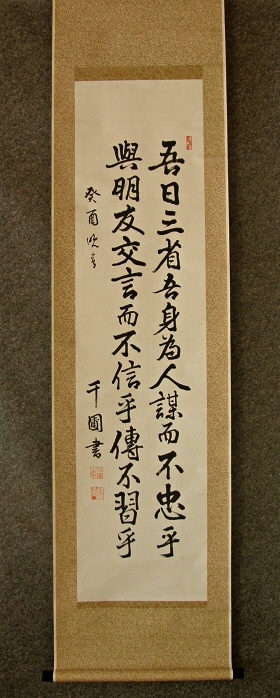 吾日三省吾身為人謀而不忠乎
與朋友交言而不信乎傳不習乎
癸酉晚春
千圃書